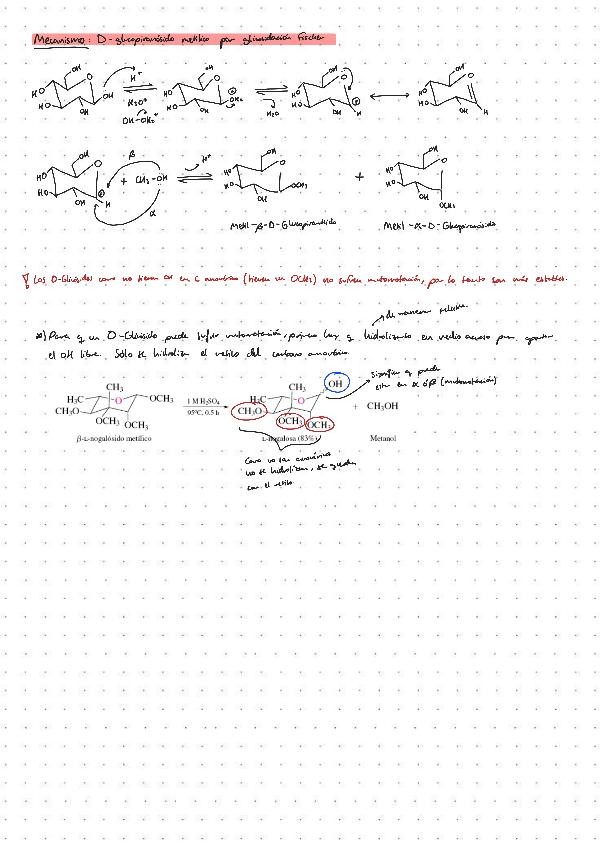 Mecanismo: D-glucopiranósido metílico por glicosidación Fischer
OH OH OH OH
HO HO OH H⁺ HO HO OH₂ HO HO H HO HO H
H₃O⁺ H₂O
OH OH OH OH
OH β H⁺ OH OH
HO HO + CH₃-OH HO HO OCH₃ + HO HO
OH H OH OH OCH₃
α
Metil-β-D-Glucopiranósido Metil-α-D-Glucopiranósido
Los O-Glicósidos como no tienen OH en C anomérico (tienen un OCH₃) no sufren mutorrotación, por lo tanto son más estables.
de manera selectiva
Para q un O-Glicósido puede sufrir mutorrotación, primero hay q hidrolizarlo en medio acuoso para
el OH libre. Sólo se hidroliza el metilo del carbono anomérico
significa q puede
estar en α ó β (mutorrotación)
CH₃ CH₃ OH
H₃C O OCH₃ 1 M H₂SO₄ H₃C O
CH₃O 95°C, 0.5 h CH₃O + CH₃OH
OCH₃ OCH₃ OCH₃ OCH₃
β-L-nogalósido metílico L-nogalosa (83%) Metanol
Como no son anoméricos
no se hidrolizan, se quedan
con el metilo